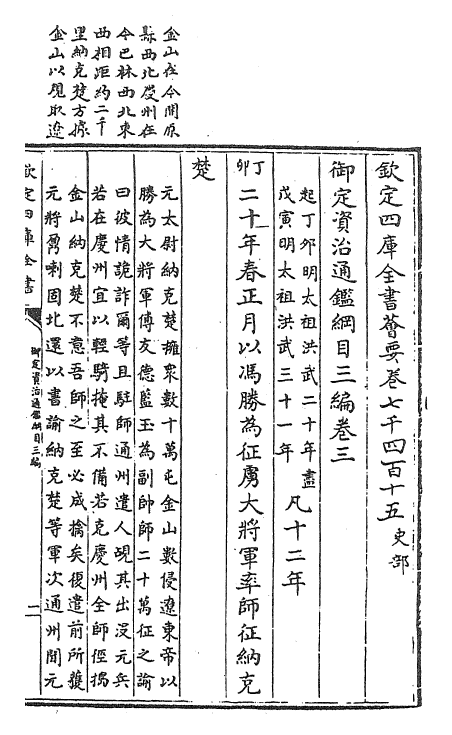 金山在今開原
縣西北慶州在
今巴林西北東
西相距約二千
里納克楚方據
金山以覬取遼
欽定四庫全書薈要卷七千四百十五 史部
御定資治通鑑綱目三編卷三
起丁夘明太祖洪武二十年盡
戊寅明太祖洪武三十一年 凡十二年
丁夘 二十年春正月以馮勝為征虜大將軍率師征納克
楚
元太尉納克楚擁衆數十萬屯金山數侵遼東帝以
勝為大將軍傅友德藍玉為副帥師二十萬征之諭
曰彼情詭詐爾等且駐師通州遣人覘其出没元兵
若在慶州宜以輕騎掩其不備若克慶州全師徑搗
金山納克楚不意吾師之至必成擒矣復遣前所獲
元將鼐喇固北還以書諭納克楚等軍次通州聞元
欽定四庫全書
御定資治通鑑綱目三編
一